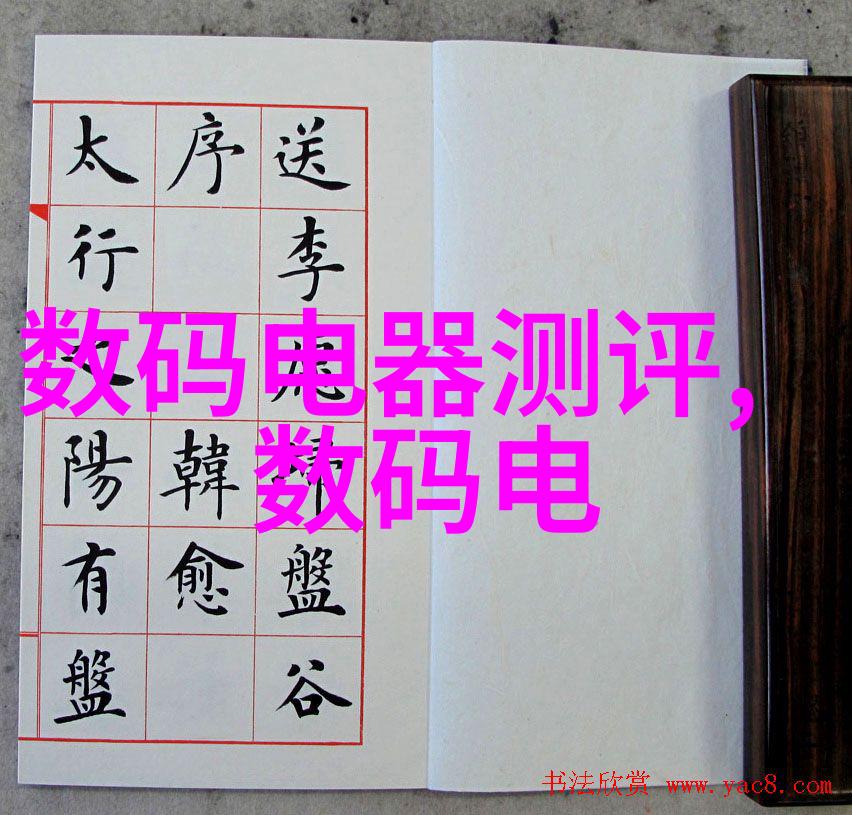 送李愿歸盤谷
序韓愈
太行之陽有盤
数码电器测评,
数码电
书法欣赏 www.yac8.com